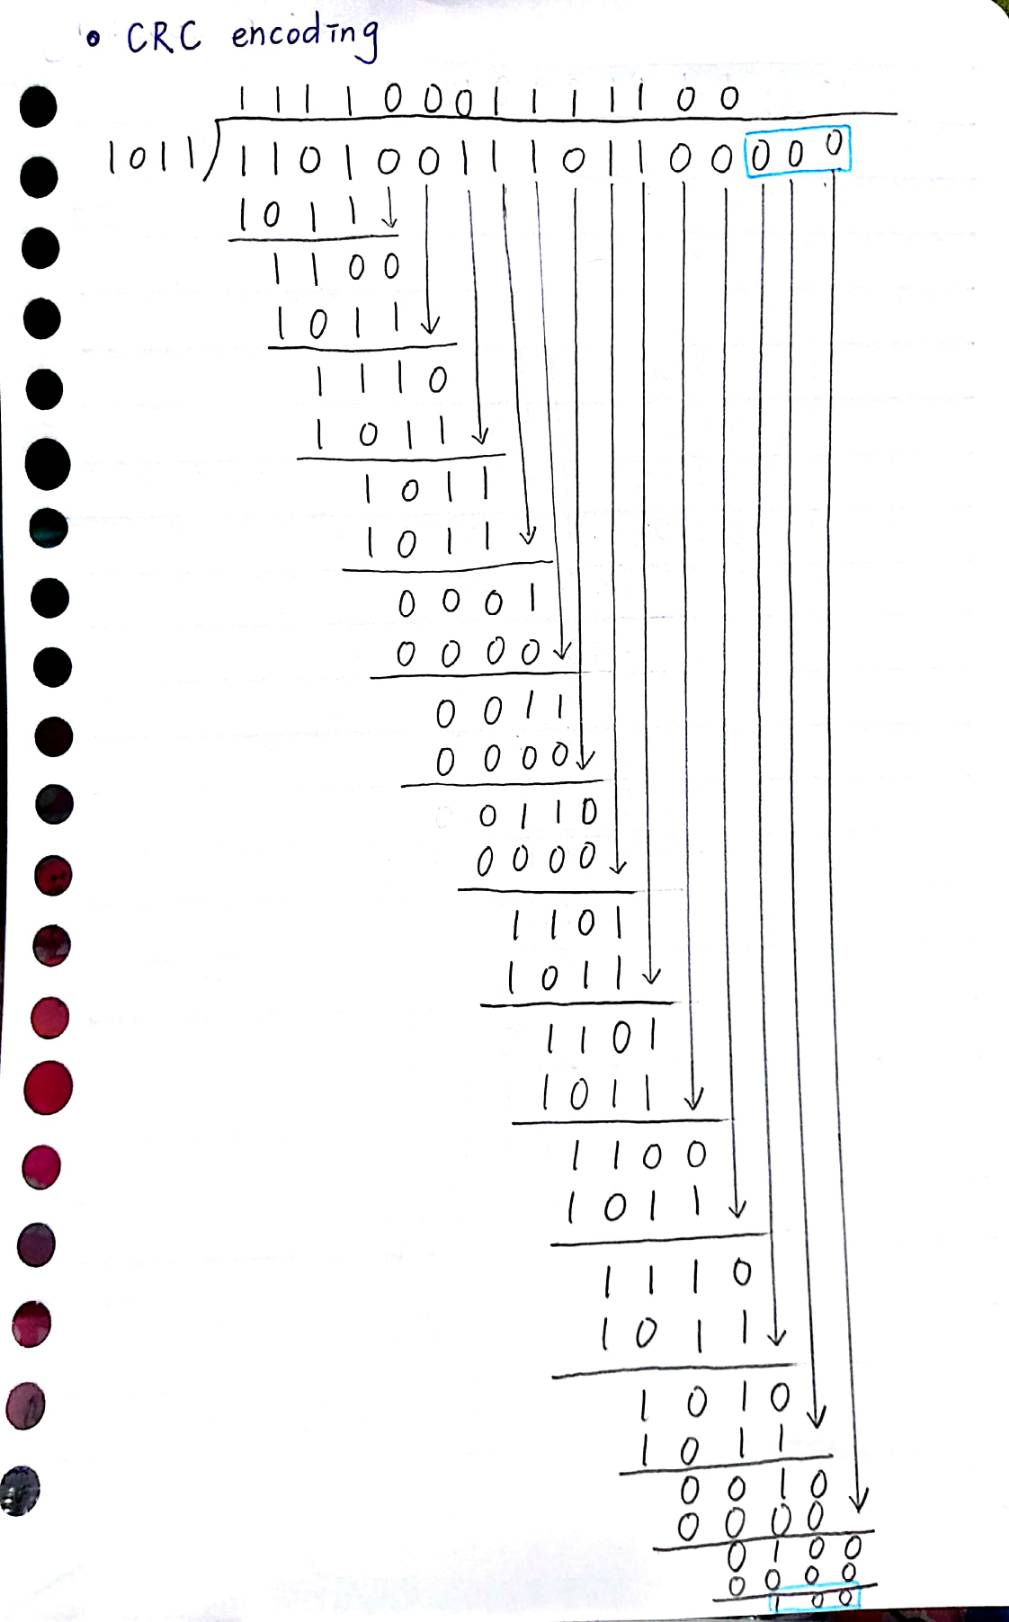 • CRC encoding
1 1 1 1 0 0 0 1 1 1 1 1 0 0
1011 ) 1 1 0 1 0 0 1 1 1 0 1 1 0 0 0 0 0
1 0 1 1
1 1 0 0
1 0 1 1
1 1 1 0
1 0 1 1
1 0 1 1
1 0 1 1
0 0 0 1
0 0 0 0
0 0 1 1
0 0 0 0
0 1 1 0
0 0 0 0
1 1 0 1
1 0 1 1
1 1 0 1
1 0 1 1
1 1 0 0
1 0 1 1
1 1 1 0
1 0 1 1
1 0 1 0
1 0 1 1
0 0 1 0
0 0 0 0
0 1 0 0
0 0 0 0
1 0 0